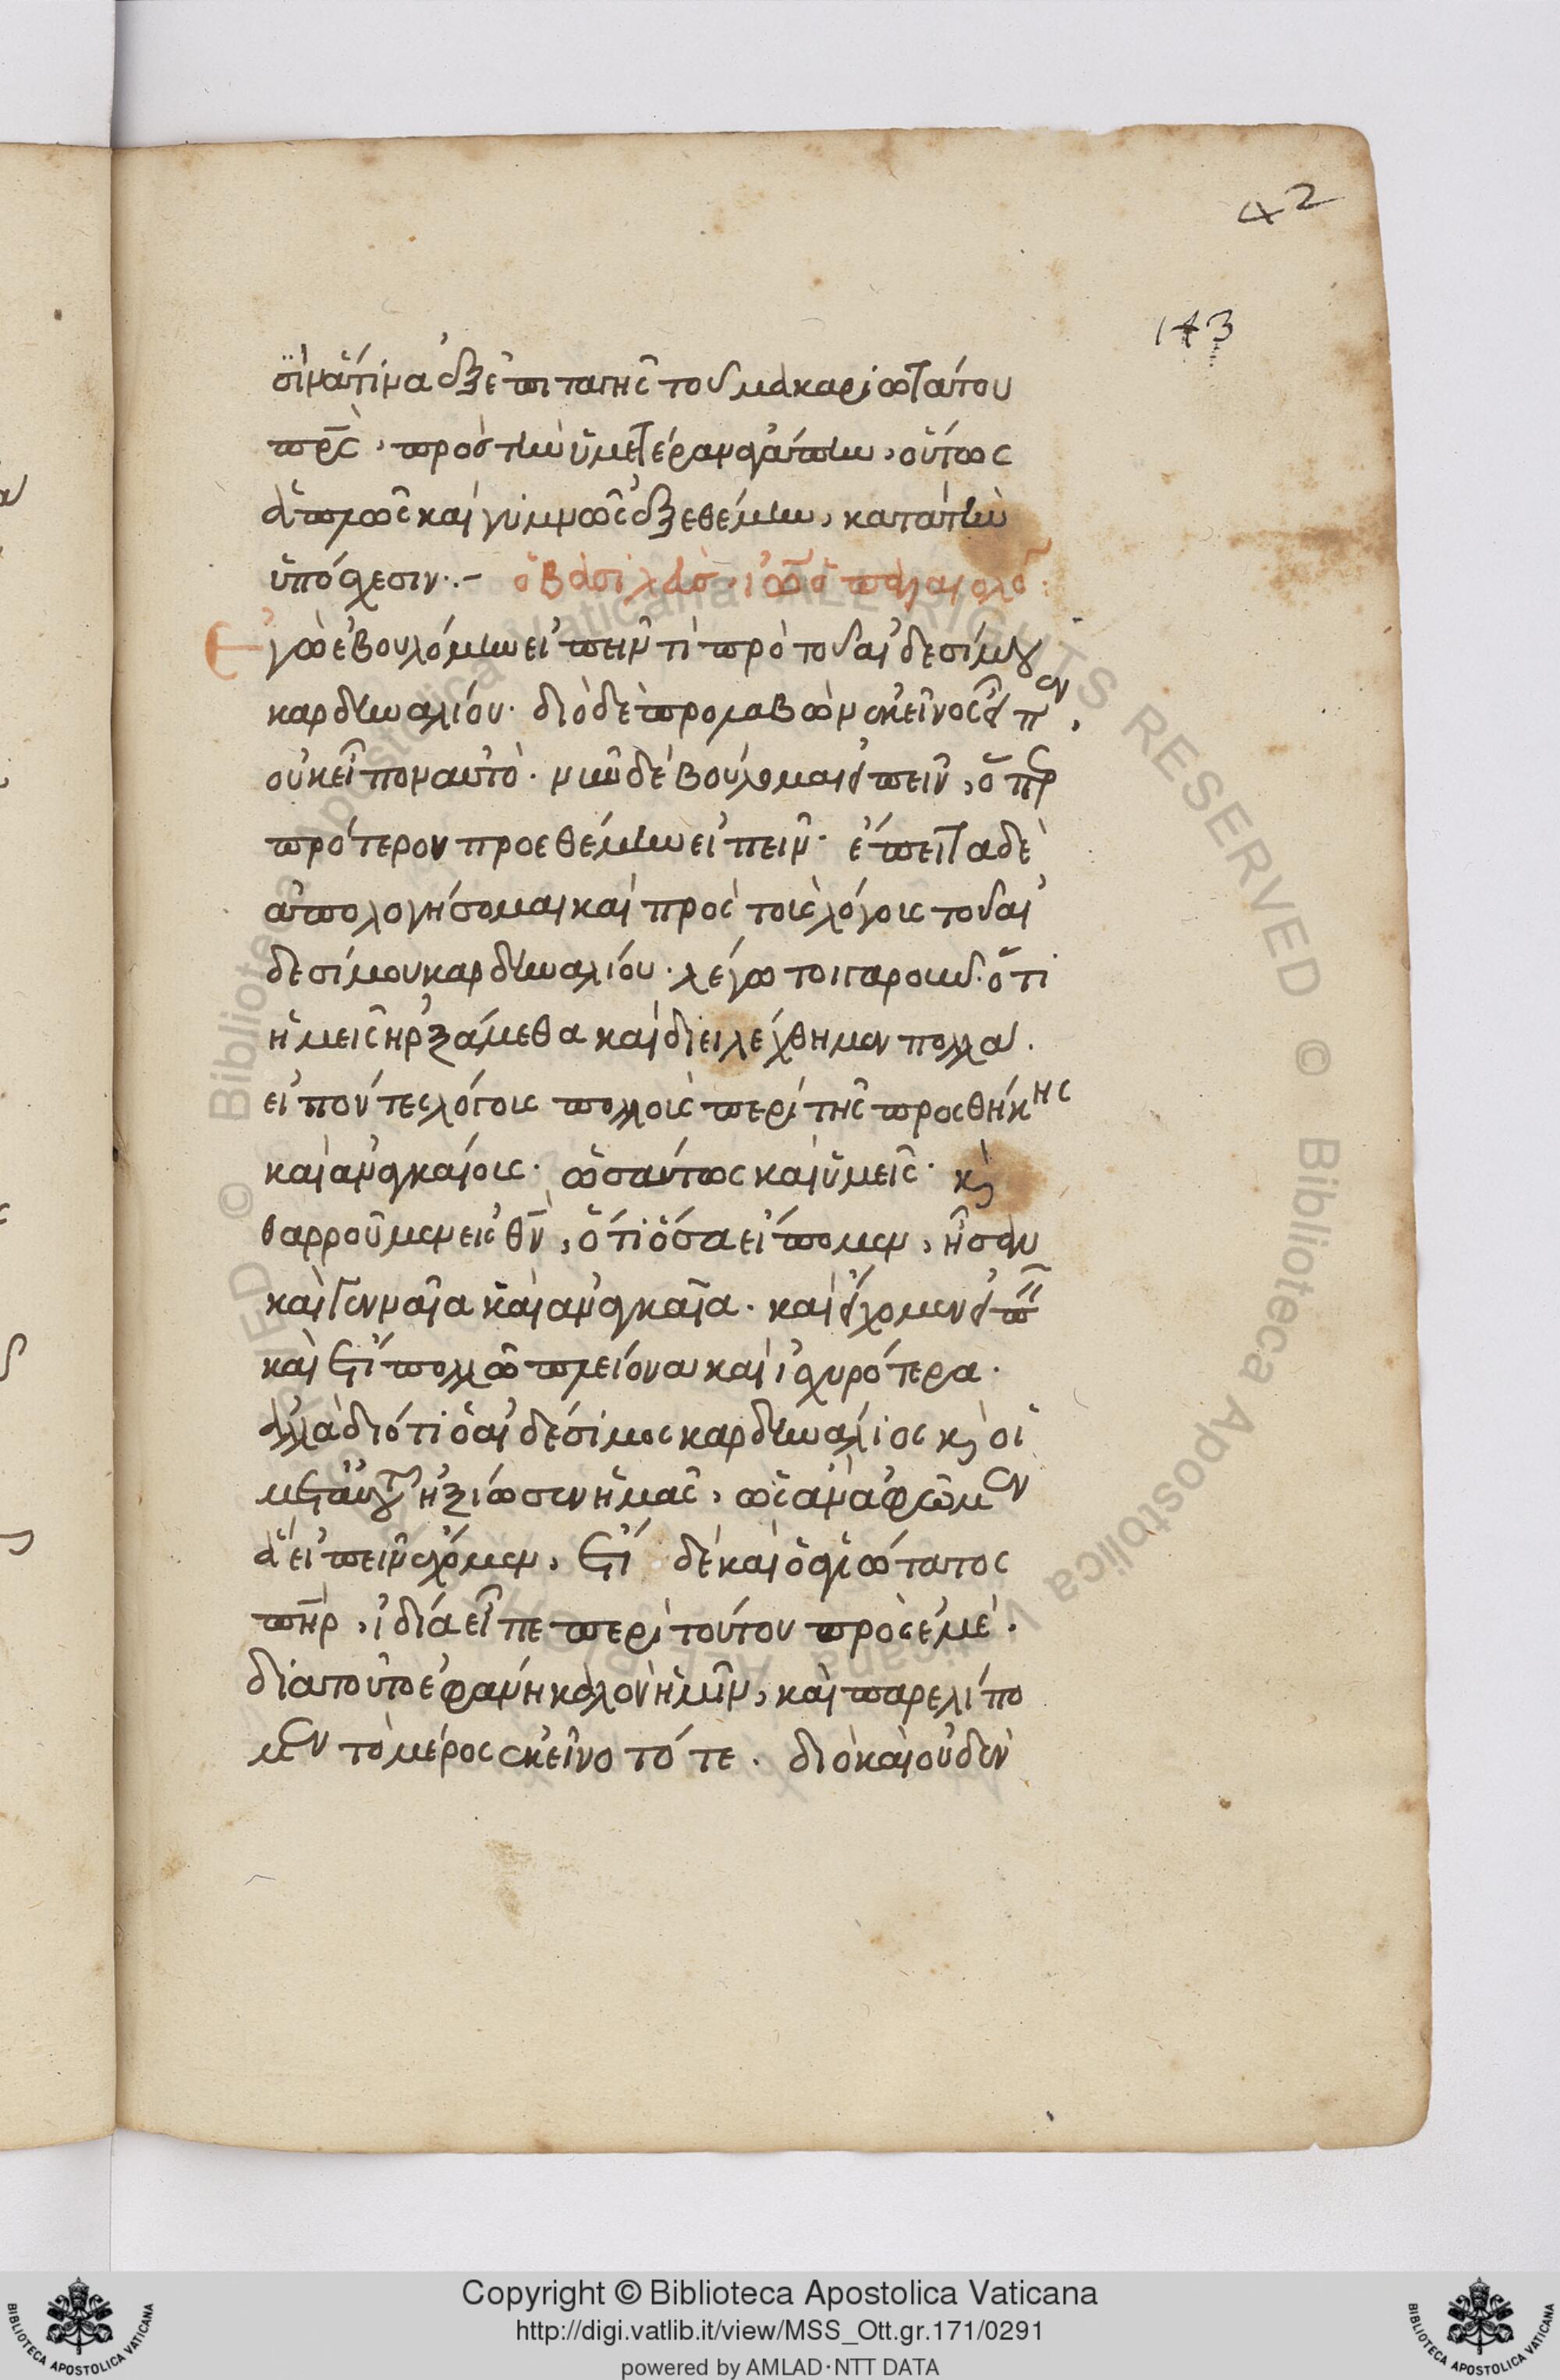 42
143
σιμάτινα ἐξ ἐπιταγῆς τοῦ μακαριωτάτου
πρς̅, πρὸς τὴν ὑμετέραν ἀγάπην, οὕτως
ἁπλῶς καὶ γυμνῶς ἐξεθέμην, κατὰ τὴν
ὑπόσχεσιν.– ὁ βασιλεὺς ἰω̅ ὁ παλαιολο
Ἐγὼ ἐβουλόμην εἰπεῖν τι πρὸ τοῦ αἰδεσίμου
καρδηναλίου· διὸ δὲ προλαβὼν ἐκεῖνος εἶπεν,
οὐκ εἶπον αὐτό. νῦν δὲ βούλομαι εἰπεῖν, ὅπερ
πρότερον προεθέμην εἰπεῖν· ἔπειτα δὲ
ἀπολογήσομαι καὶ πρὸς τοὺς λόγους τοῦ αἰ
δεσίμου καρδηναλίου. λέγω τοιγαροῦν ὅτι
ἡμεῖς ἠρξάμεθα καὶ διειλέχθημεν πολλά.
εἰπόντες λόγους πολλοὺς περὶ τῆς προσθήκης
καὶ ἀναγκαίους. ὡσαύτως καὶ ὑμεῖς· κὶ
θαρροῦμεν εἰς θν̅, ὅτι ὅσα εἴπομεν, ἦσαν
καὶ γενναῖα καὶ ἀναγκαῖα. καὶ ἔχομεν εἰπεῖν
καὶ ἔτι πολλῶ πλείονα καὶ ἰσχυρότερα.
ἀλλὰ διότι ὁ αἰδέσιμος καρδηνάλιος κὶ οἱ
μετ' αὐτοῦ ἠξίωσεν ἡμᾶς, ὡς ἀναφέρωμεν
ἃ εἰπεῖν ἔχομεν, ἔτι δὲ καὶ ὁ ἁγιώτατος
πη̅ρ, ἰδία εἶπε περὶ τούτου πρὸς ἐμέ.
διὰ τοῦτο ἐφάνη καλὸν ἡμῖν, καὶ παρελίπο
μεν τὸ μέρος ἐκεῖνο τότε. διὸ καὶ οὐδὲν
Copyright © Biblioteca Apostolica Vaticana
http://digi.vatlib.it/view/MSS_Ott.gr.171/0291
powered by AMLAD·NTT DATA